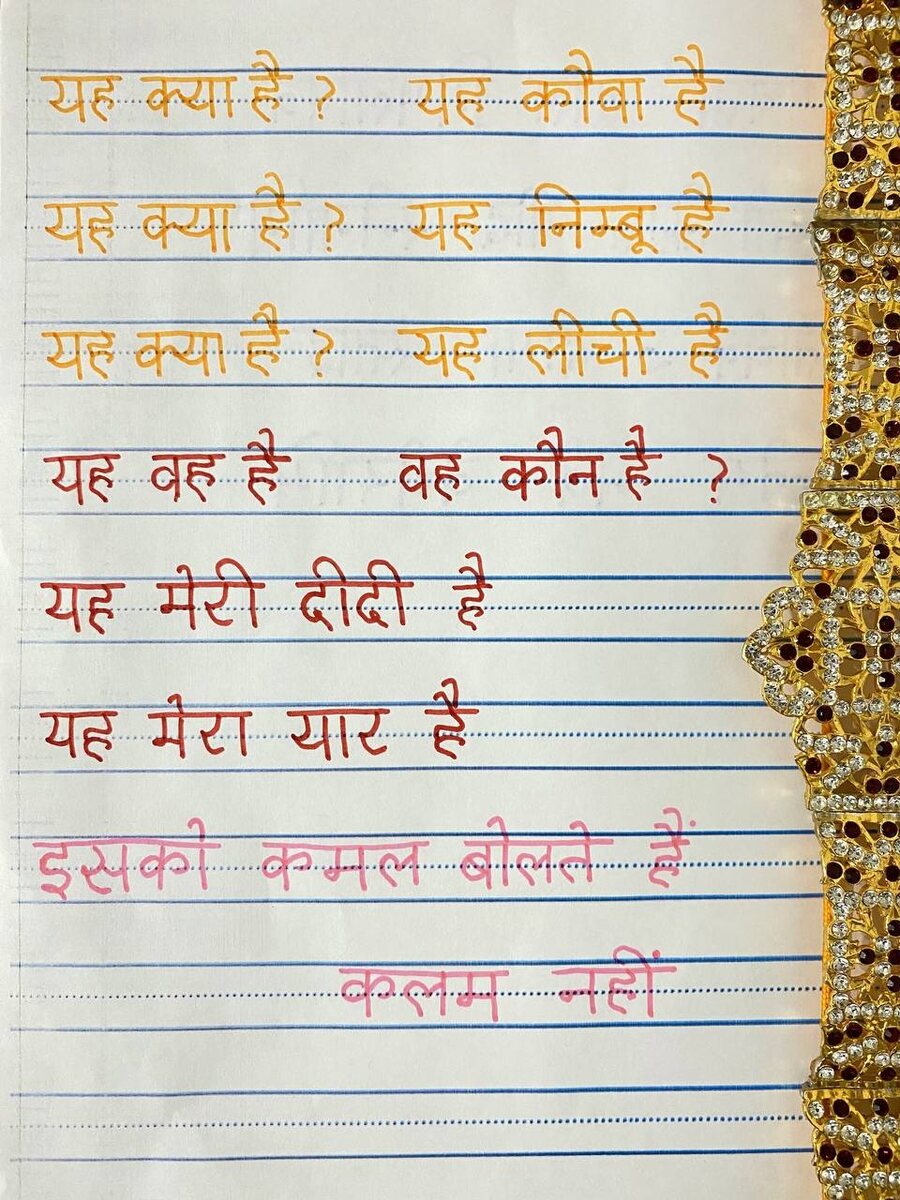 यह क्या है ? यह कौवा है
यह क्या है ? यह निम्बू है
यह क्या है ? यह लीची है
यह वह है वह कौन है ?
यह मेरी दीदी है
यह मेरा यार है
इसको कमल बोलते हैं
कलम नहीं